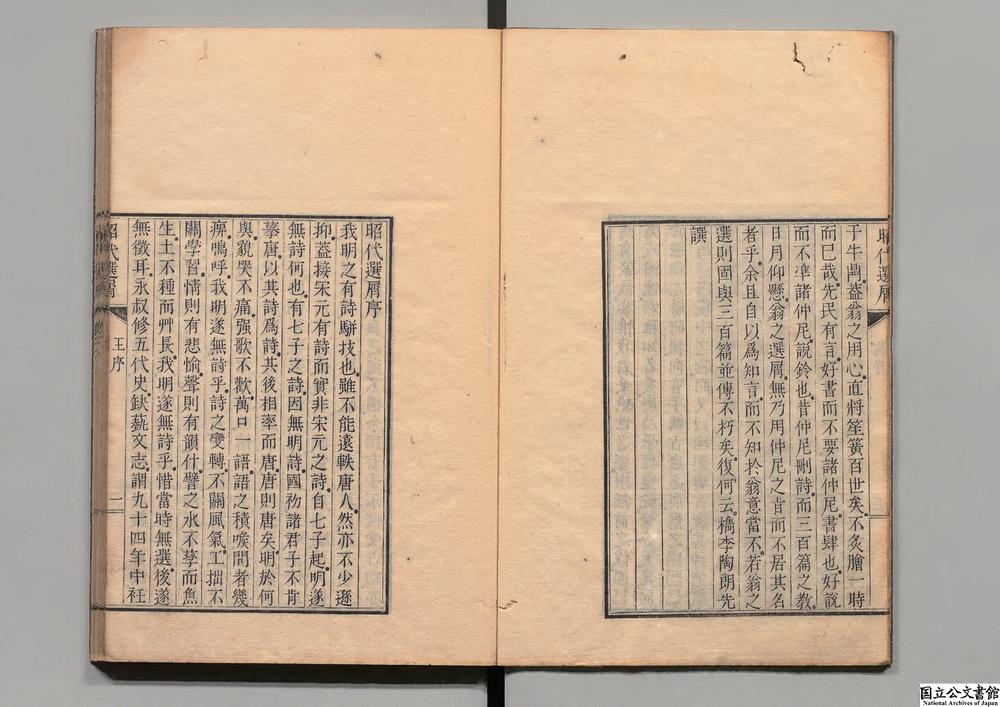 昭代選屑
于牛鼎葢翁之用心直將笙簧百世矣不炙膾一時
而已哉先民有言好書而不要諸仲尼書肆也好說
而不準諸仲尼說鈴也昔仲尼刪詩而三百篇之教
日月仰懸翁之選屑無乃用仲尼之旨而不居其名
者乎余且自以爲知言而不知於翁意當不若翁之
選則固與三百篇並傳不朽矣復何云檇李陶朗先
譔
昭代選屑序
我明之有詩駢技也雖不能遠軼唐人然亦不少遜
抑葢接宋元有詩而實非宋元之詩自七子起明遂
無詩何也有七子之詩因無明詩國初諸君子不肯
摹唐以其詩爲詩其後相率而唐唐則唐矣明於何
與貌哭不痛强歌不歡萬口一語語之積喉間者幾
瘝嗚呼我明遂無詩乎詩之變轉不關風氣工拙不
關學習情則有悲愉聲則有韻什譬之水不孳而魚
生土不種而艸長我明遂無詩乎惜當時無選後遂
無徵耳永叔修五代史缺蓺文志謂九十四年中在
昭代選屑
王序
一
国立公文書館
National Archives of Japan